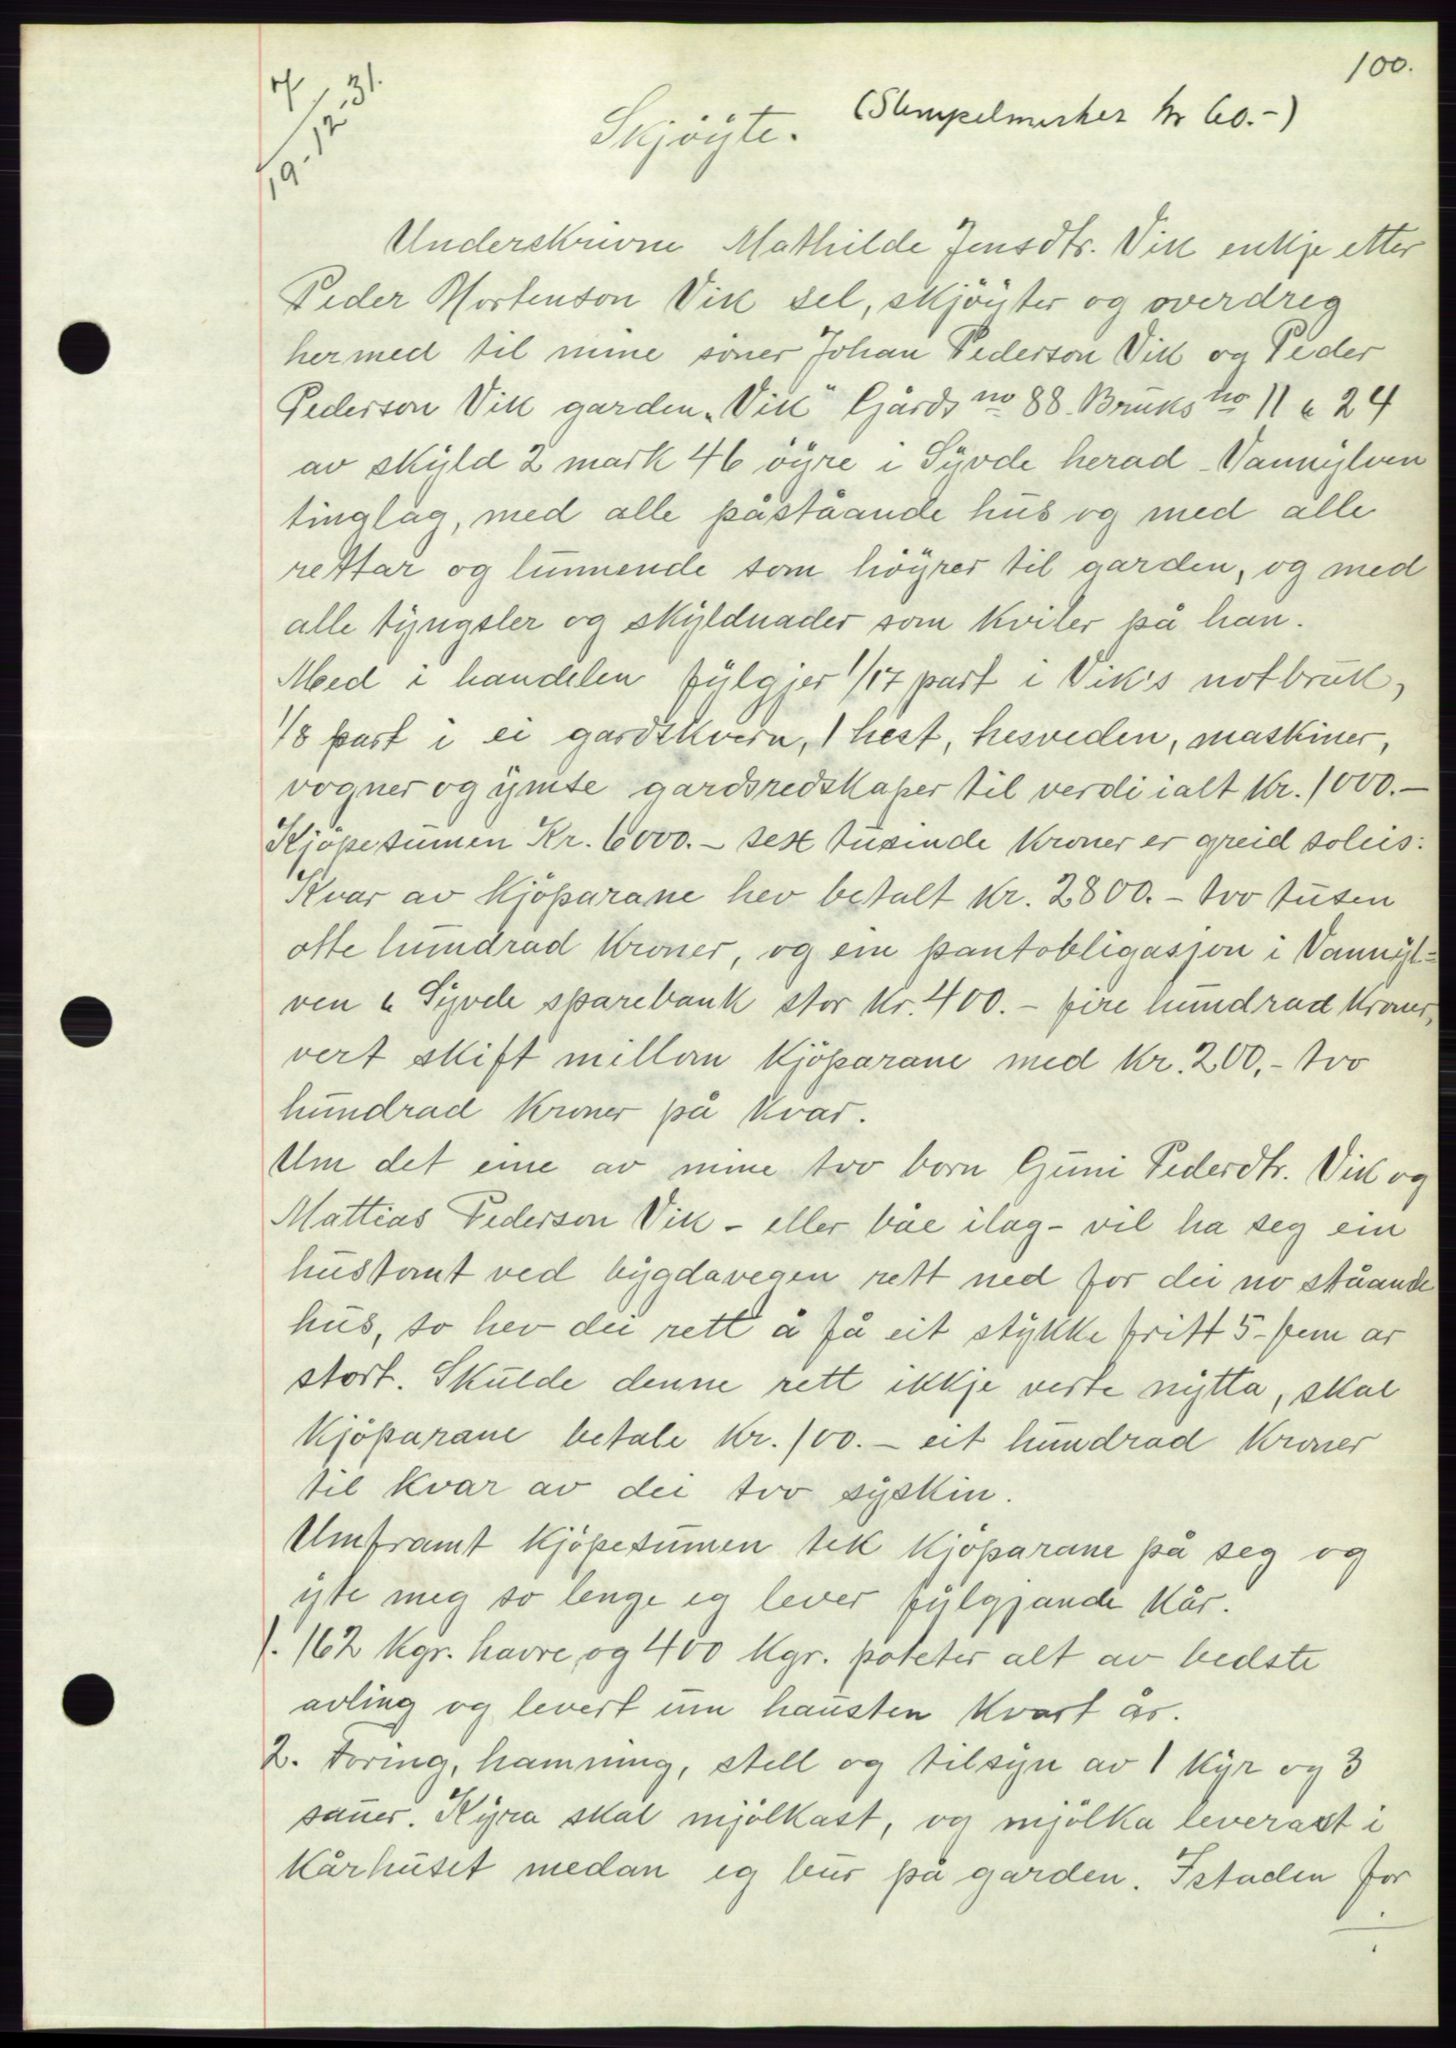 100.
7/19-12-31.
Skjöyte. (Stempelmerker kr 60.-)
Underskrivne Mathilde Jensdtr. Vik enkje etter
Peder Mortenson Vik sel, skjöyter og overdreg
hermed til mine söner Johan Pederson Vik og Peder
Pederson Vik garden „Vik" Gårds no 88. Bruks no 11 & 24
av skyld 2 mark 46 öyre i Syvde herad - Vannylven
tinglag, med alle påståande hus og med alle
rettar og lunnende som höyrer til garden, og med
alle tyngsler og skyldnader som kviler på han.
Med i handelen fylgjer 1/17 part i Vik's notbruk,
1/8 part i ei gardskvern, 1 hest, hesveden, maskiner,
vogner og ymse gardsredskaper til verdi ialt Kr. 1000.-
Kjöpesumen Kr. 6000.- seks tusinde kroner er greid soleis:
Kvar av kjöparane hev betalt kr. 2800.- tvo tusen
otte hundrad kroner, og ein pantobligasjon i Vannyl=
ven & Syvde sparebank stor kr. 400.- fire hundrad kroner,
vert skift millom kjöparane med kr. 200,- tvo
hundrad kroner på kvar.
Um det eine av mine tvo born Guni Pederdtr. Vik og
Mattias Pederson Vik - eller båe ilag - vil ha seg ein
hustomt ved bygdavegen rett ned for dei no ståande
hus, so hev dei rett å få eit stykke fritt 5- fem ar
stort. Skulde denne rett ikkje verte nytta, skal
kjöparane betale kr. 100.- eit hundrad kroner
til kvar av dei tvo syskin.
Umframt kjöpesumen tek kjöparane på seg og
yte meg so lenge eg lever fylgjande kår.
1. 162 kgr. havre og 400 kgr. poteter alt av bedste
avling og levert um hausten kvart år.
2. Foring, hamning, stell og tilsyn av 1 kyr og 3
sauer. Kyra skal mjölkast, og mjölka leverast i
kårhuset medan eg bur på garden. Istaden for